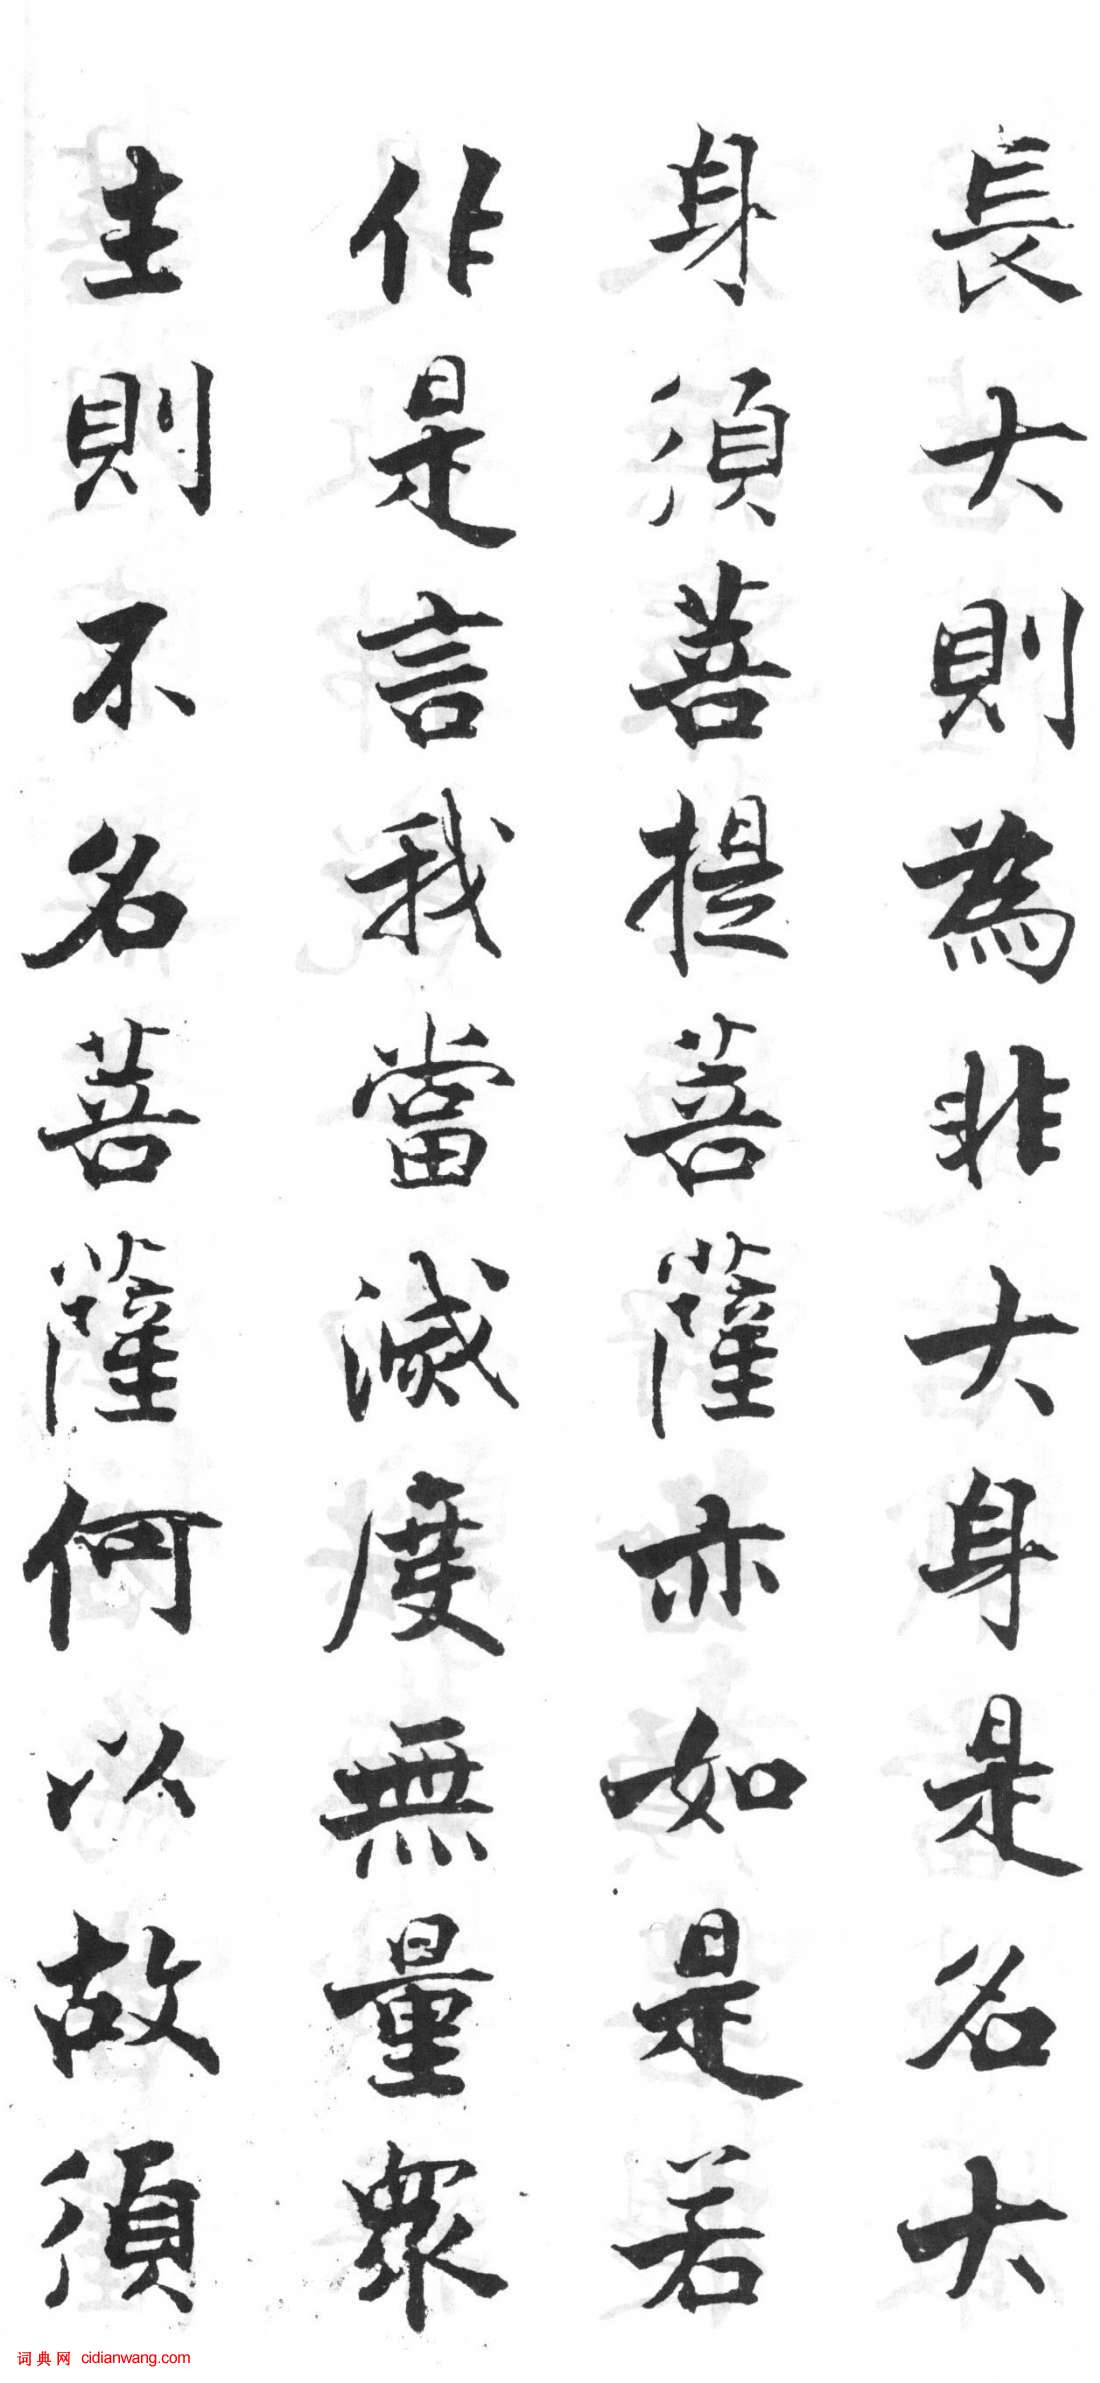 長大則為非大身是名大
身須菩提菩薩亦如是若
作是言我當滅度無量衆
生則不名菩薩何以故須
词典网 cidianwang.com